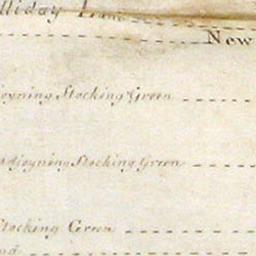 lliday Lane
New
oyning Stocking Green
adjoyning Stocking Green
Stocking Green